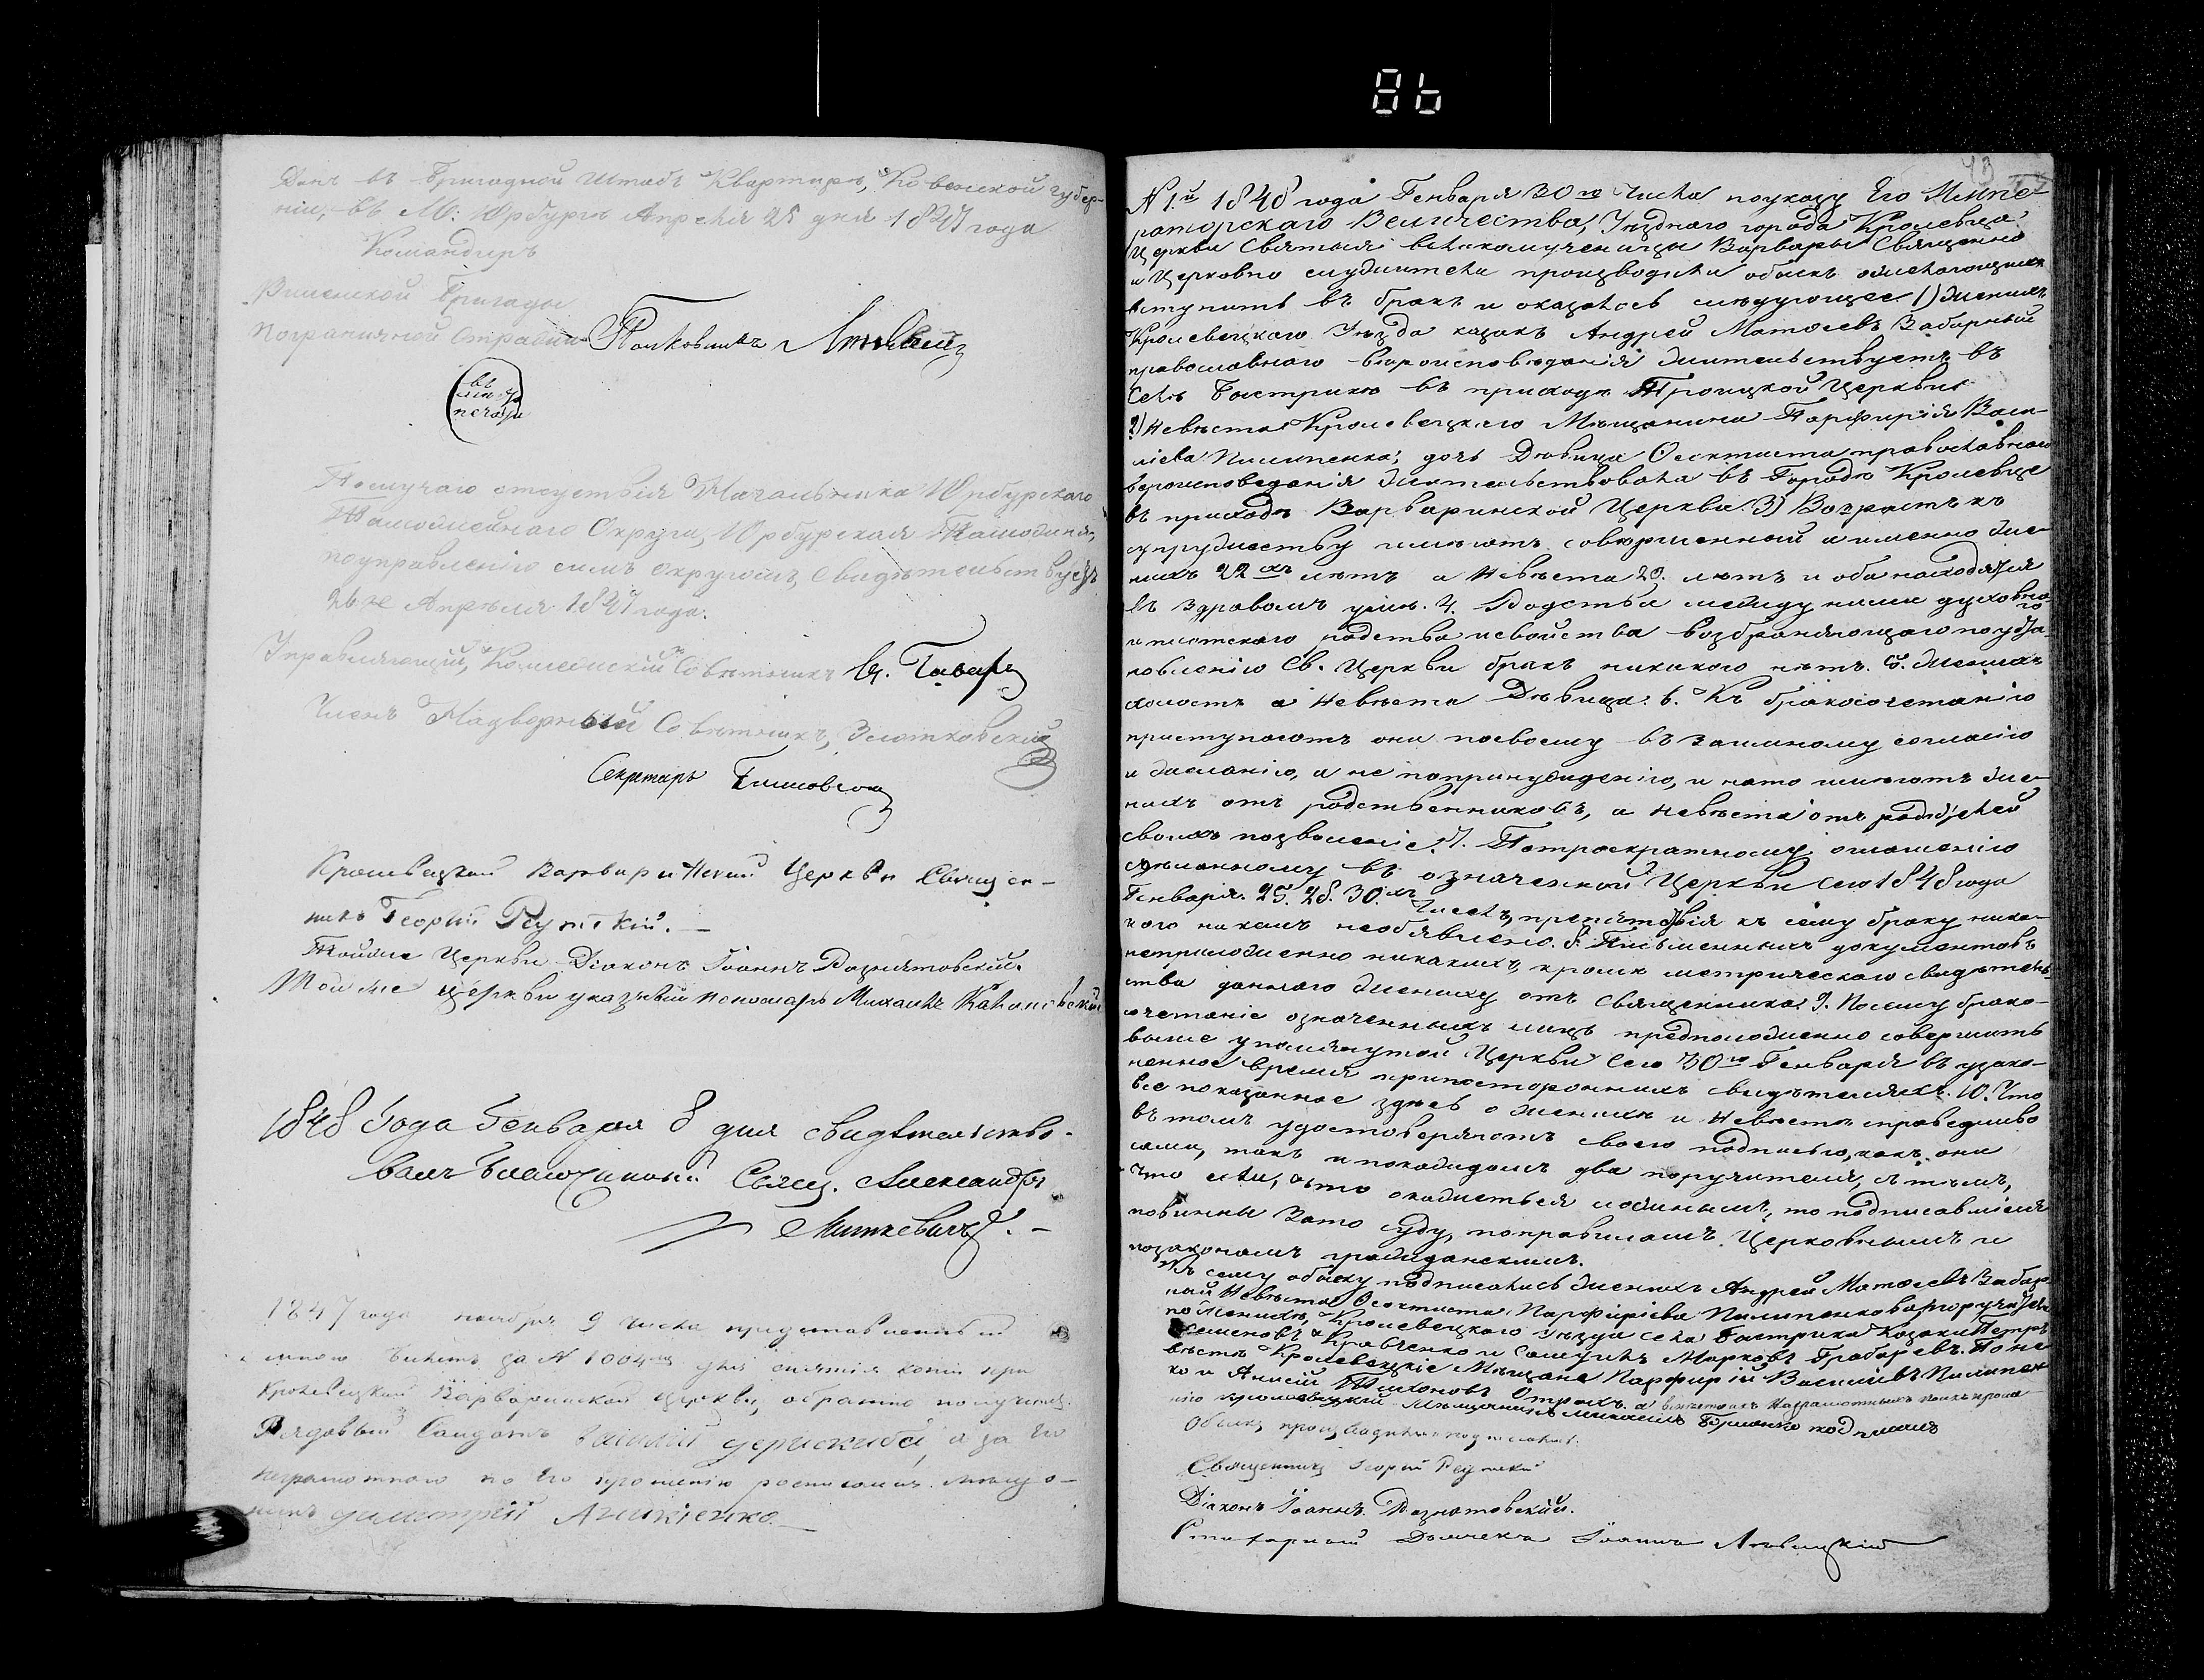 86
Данъ въ Бригадной Штабъ Квартиръ, Ковенской губер-
ніи, въ М: Юрбургъ Апрѣля 25 дня 1847 года
Командиръ
Бригады
Пограничной Стражи Полковникъ
въ
печати
По случаю отсутствія Начальника Юрбургскаго
Таможеннаго Округа, Юрбургская Таможня,
по управленію симъ Округомъ, Свидѣтельствуетъ
26 го Апрѣля 1847 года.
Управляющій, Коллежскій Совѣтникъ
Членъ Надворный Совѣтникъ,
Секретарь
Кролевецкой Варваринской Церкви Священ-
никъ Георгій Реутскій.
Тойже Церкви Діаконъ Іоаннъ Рознятовскій.
Той же церкви указный пономарь Михаилъ
1848 Года Генваря 8 дня свидѣтельство-
валъ Благочинный Свящ. Александръ
Миткевичъ.
1847 года ноября 9 числа представленный
мною Билетъ за N 1004 для снятія копіи при
Кролевецкой Варваринской церкви, обратно получилъ.
Рядовый Солдатъ а за Его
неграмотного по Его прошенію росписался мещо-
нинъ Димитрій Аникіенко.
43
N 1.й 1848 года Генваря 30 го Числа по указу Его Импе-
раторскаго Величества, Уѣзднаго города Кролевца
Церкви Святыя великомученицы Варвары Священно
и Церковно служители производили обыскъ о желающихъ
вступить въ бракъ и оказалось слѣдующее 1) Женихъ
Кролевецкаго Уѣзда казакъ Андрей Матѳеевъ Забарный
православного вѣроисповѣданія жительствуетъ въ
Селѣ Быстрикѣ въ приходѣ Троицкой Церквы
2) Невѣста Кролевецкаго Мѣщанина Парфирія Васи-
ліева Пилипенка, дочь Дѣвица Ѳеоктиста православного
вероисповеданія жительствовала въ Городѣ Кролевце
въ приходѣ Варваринской Церкви. 3) Возрастъ къ
супружеству имѣютъ совершенный а именно же-
нихъ 22 хъ лѣтъ а Невѣста 20. лѣтъ и оба находятся
въ здравомъ умѣ. 4. Родства между ними духовна-
го и плотскаго родства и свойства возбраняющаго по уста-
новленію Св. Церкви бракъ никакого нѣтъ. 5. Женихъ
холостъ а Невѣста Дѣвица. 6. Къ бракосочетанію
приступаютъ они по своему взаимному согласію
и желанію, а не по принужденію, и на то имѣютъ же-
нихъ отъ родственниковъ, а невѣста отъ родителей
своихъ позволеніе. 7. По троекратному оглашенію
сдѣланному въ означенной Церкви сего 1848 года
Генваря. 25. 28. 30. хъ Числъ, препятствія къ сему браку ника-
кого никемъ необъявлено. 8. Письменныхъ документовъ
неприложенно никакихъ, кроме метрическаго свидѣтель-
ства даннаго жениху отъ Священника. 9. Посему брако-
сочетаніе означенныхъ лицъ предположенно совершить
выше упомянутой Церкви сего 30 го Генваря въ узако-
ненное время при постороннихъ свидѣтеляхъ. 10. Что
все показанное здѣсь о женихѣ и Невѣстѣ справедливо
въ томъ удостоверяютъ своею подписью, какъ они
сами, такъ и по каждомъ два поручителя, съ тѣмъ,
что если, что окажеться ложнымъ, то подписавшіеся
повинны за то суду, по правиламъ Церковнымъ и
по законамъ гражданскимъ.
Къ сему обыску подписались женихъ Андрей Матѳеевъ Забар-
ный Невѣста Ѳеоктиста Парфиріева Пилипенкова поручители
по Женихѣ, Кролевецкаго Уѣзда села Быстрика Казаки Петръ
Семеновъ Кравченко и Самуилъ Марковъ Грабаревъ. По не-
вѣстѣ Кролевецкіе Мѣщане Парфирій Василіевъ Пилипен-
ко и
Кролевецкий Мѣщанинъ подписалъ
Обыскъ производили и подписали:
Священникъ Георгій Реутскій
Діаконъ Іоаннъ Рознятовскій.
Іоаннъ